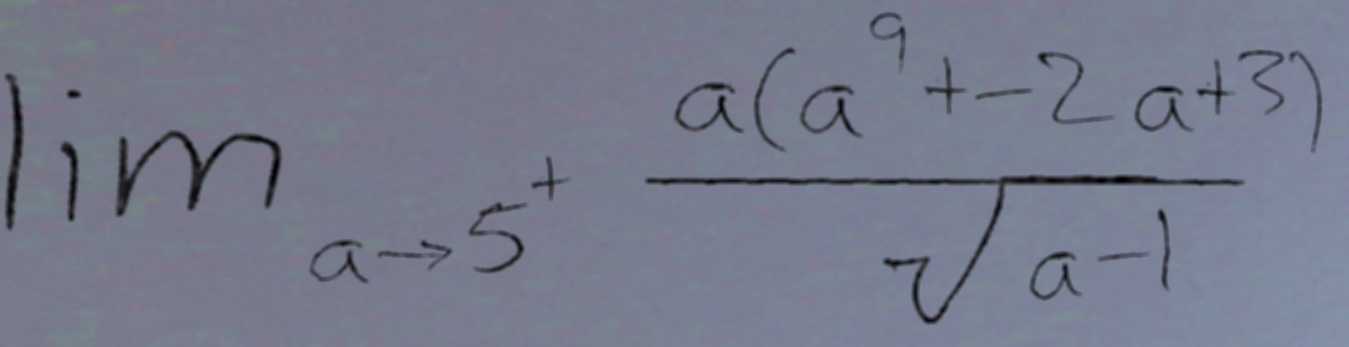 \lim_{a \to 5^+} \frac{a(a^9+-2a+3)}{\sqrt{a-1}}